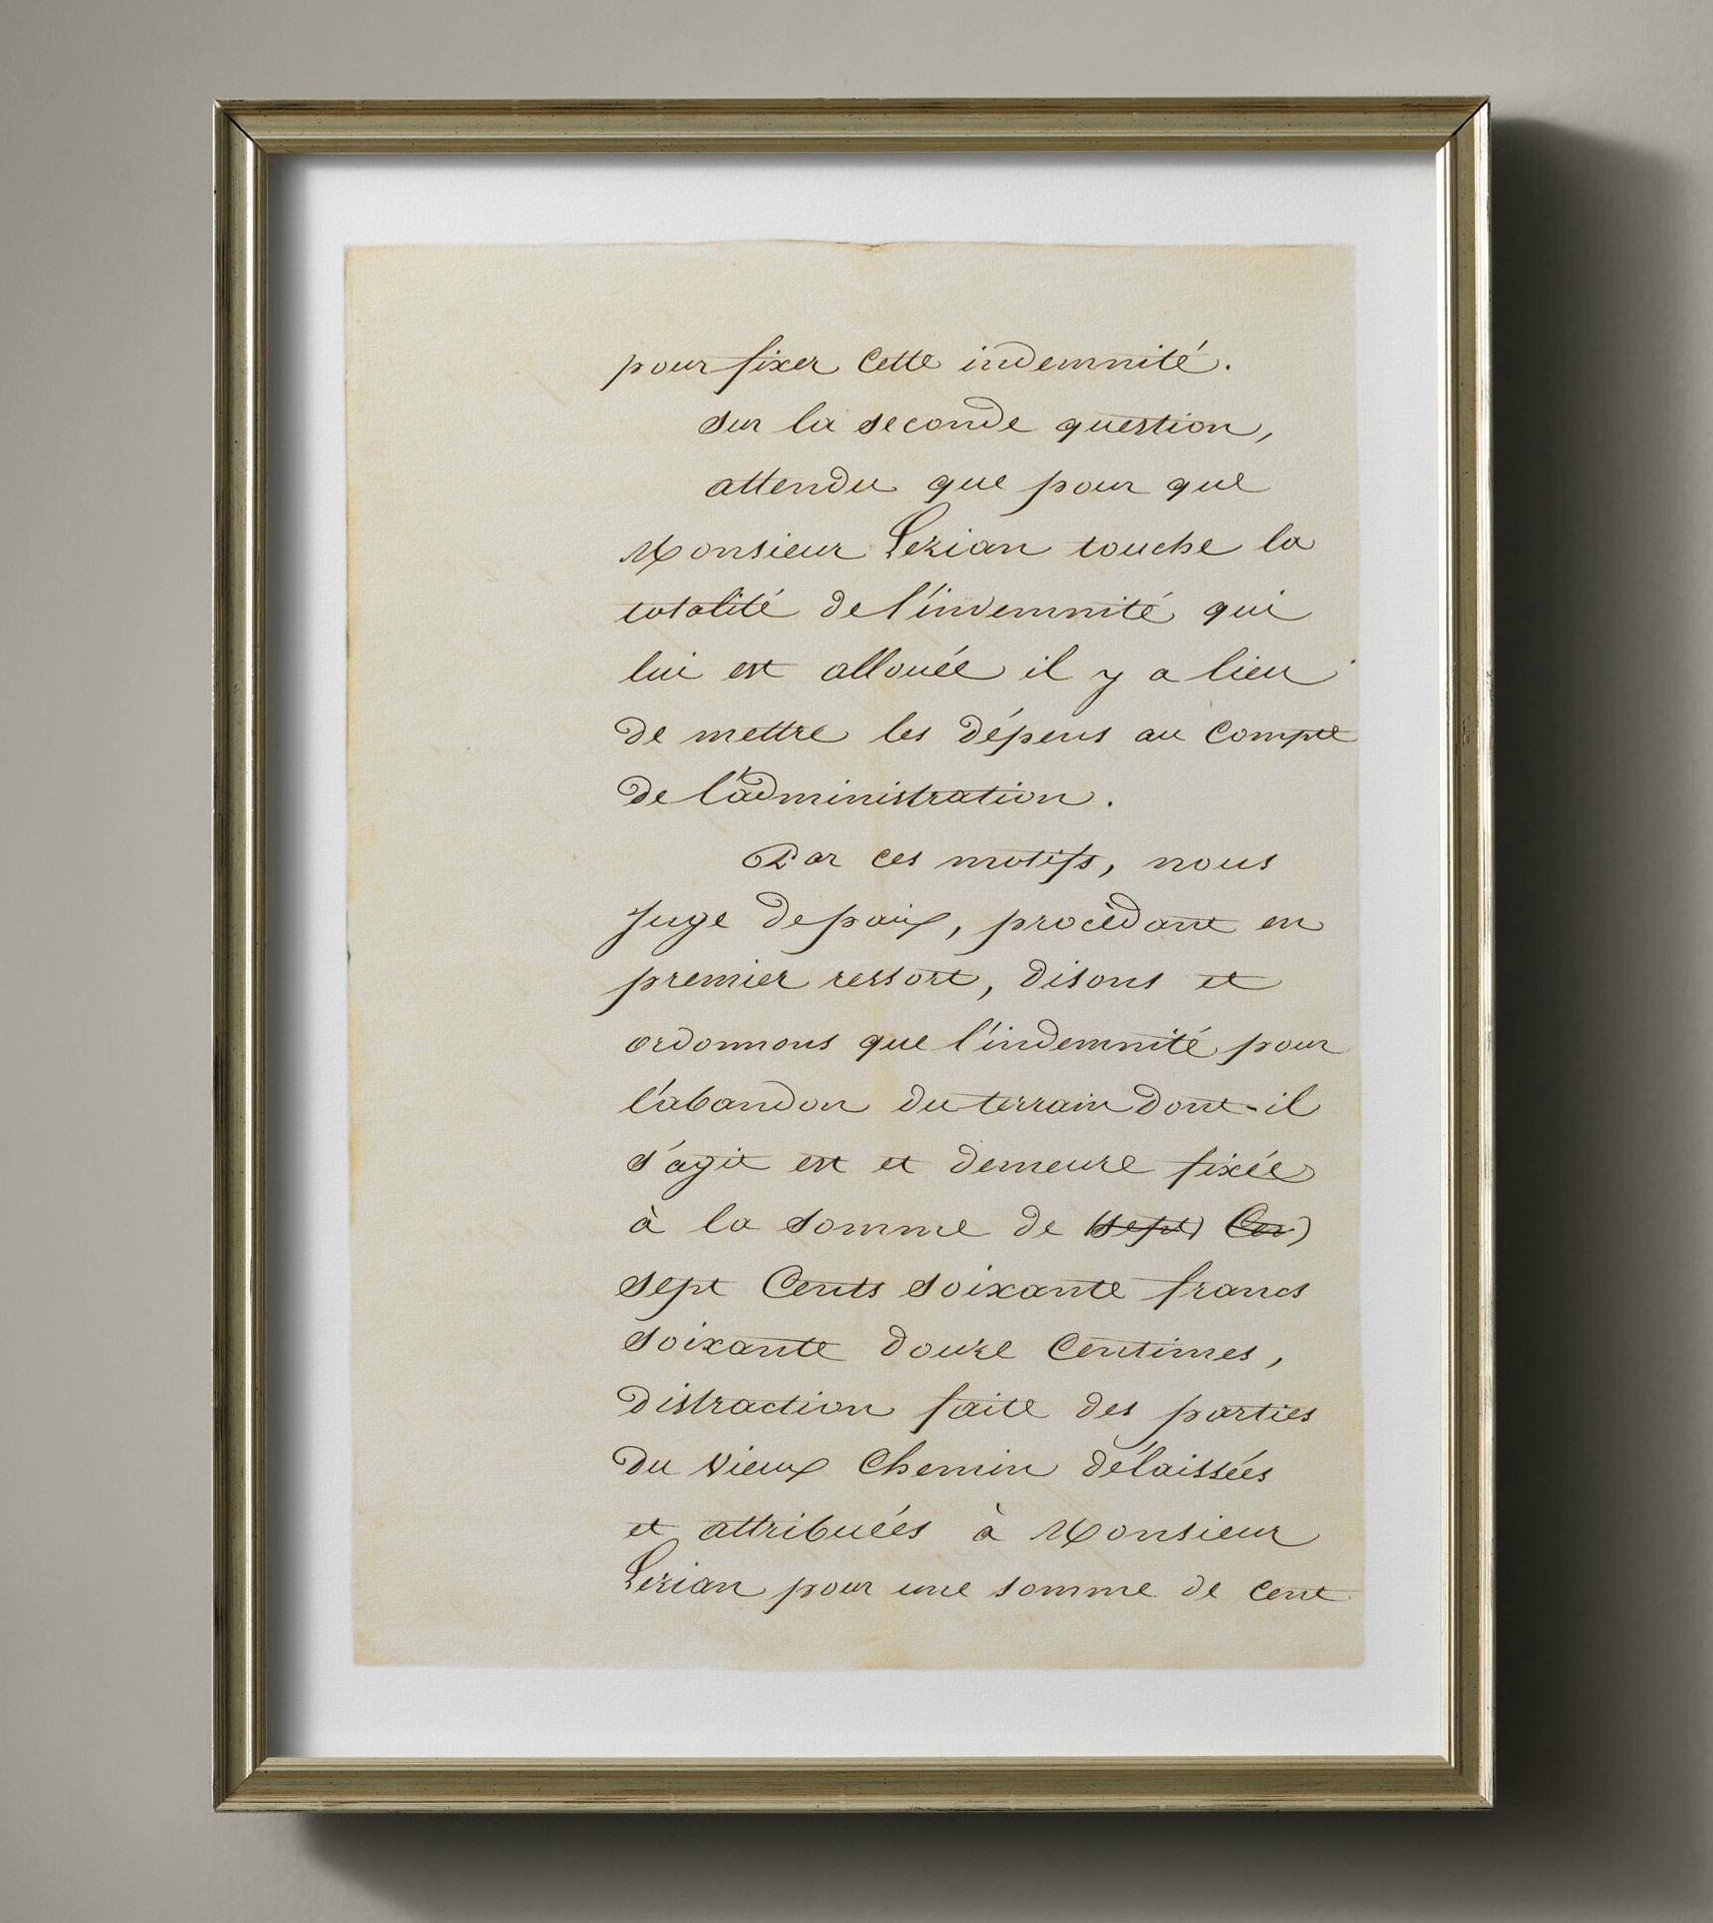 pour fixer Cette indemnité.
sur la seconde question,
attendu que pour que
Monsieur Lezian touche la
totalité de l'indemnité qui
lui est allouée il y a lieu
de mettre les dépens au Compte
de l'administration.
Par ces motifs, nous
Juge de paix, procédant en
premier ressort, disons et
ordonnons que l'indemnité pour
l'abandon du terrain dont-il
s'agit est et demeure fixée
à la somme de (sept) Cen)
sept Cents soixante francs
soixante douze Centimes,
distraction faite des parties
du vieux Chemin délaissées
et attribuées à Monsieur
Lezian pour une somme de cent